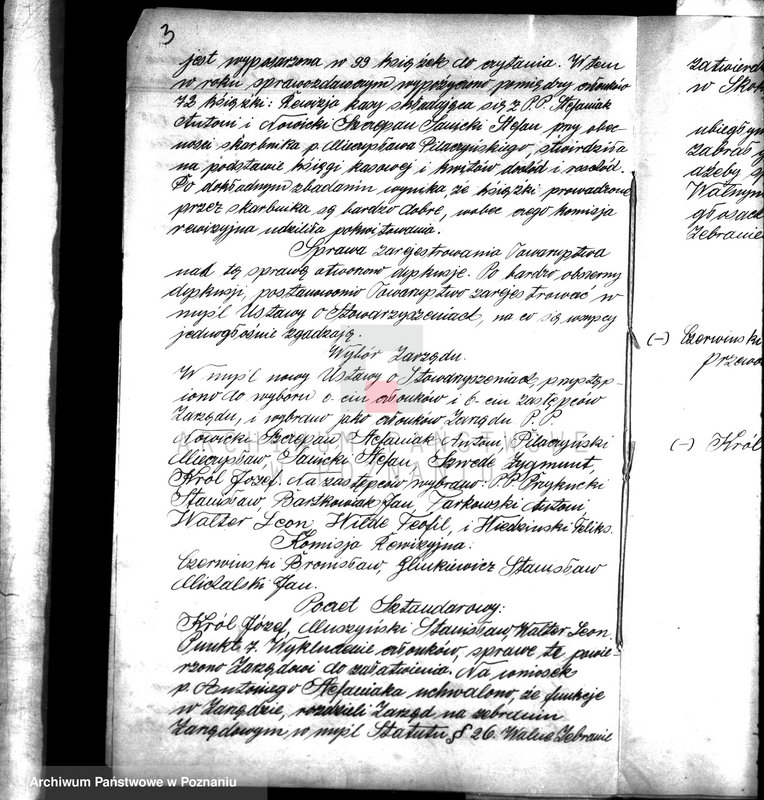 3
jest wyposarzona w 99 książek do czytania. W tem
w roku sprawozdawczym wypożyczono pomiędzy członków
72 książki: Rewizja kasy składająca się z P.P. Stefaniak
Antoni i Nowicki Szczepan Sawicki Stefan przy obec-
ności skarbnika p. Mieczysława Pilaczyńskiego, stwierdziła
na podstawie księgi kasowej i kwitów dochód i rozchód.
Po dokładnym zbadaniu wynika, że książki prowadzone
przez skarbnika są bardzo dobre, wobec czego komisja
rewizyjna udzieliła pokwitowania.
Sprawa zarejestrowania Towarzystwa
nad tą sprawą otworzono dyskusje. Po bardzo obszerny
dyskusji, postanowiono Towarzystwo zarejestrować w
myśl Ustawy o Stowarzyszeniach, na co się wszyscy
jednogłośnie zgadzają.
Wybór Zarządu.
W myśl nowy Ustawy o Stowarzyszeniach, przystąp-
iono do wyboru 6-ciu członków i 6-ciu zastępców
Zarządu, i wybrano jako członków Zarządu P.P
Nowicki Szczepan Stefaniak Antoni Pilaczyński
Mieczysław, Sawicki Stefan Szwede Zygmunt,
Król Józef. Na zastępców wybrano: P.P. Przykucki
Stanisław, Bartkowiak Jan, Tarkowski Antoni,
Walter Leon, Wilde Teofil, i Niedzinski Feliks.
Komisja Rewizyjna:
Czerwinski Bronisław, Glinkiewicz Stanisław
Michalski Jan.
Poczet Sztandarowy:
Król Józef, Muszyński Stanisław Walter Leon.
Punkt 7. Wykluczenie członków, sprawę tę powie-
rzono Zarządowi do załatwienia. Na wniosek
p. Antoniego Stefaniaka uchwalono, że funkcje
w Zarządzie, rozdzieli Zarząd na zebraniu
Zarządowym, w myśl Statutu § 26. Walne Zebranie
zatwierd
w Skok
ubiegłym
zabrał
ażeby
Walnym
głosach
Zebranie
(-) Czerwinski
przewo
(-) Król
ARCHIWUM PAŃSTWOWE
W POZNANIU
Archiwum Państwowe w Poznaniu